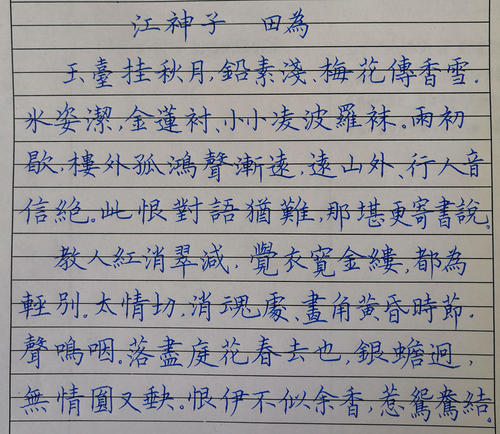 江神子 田為
玉臺挂秋月,鉛素淺、梅花傳香雪.
氷姿潔,金蓮衬、小小凌波羅袜。雨初
歇,樓外孤鴻聲漸遠,遠山外、行人音
信絶。此恨對語猶難,那堪更寄書說。
教人紅消翠減,覺衣寬金縷,都為
輕别.太情切,消魂處、畫角黄昏時節.
聲鳴咽。落盡庭花春去也,銀蟾迥,
無情圓又缺。恨伊不似余香,惹鴛鴦結。